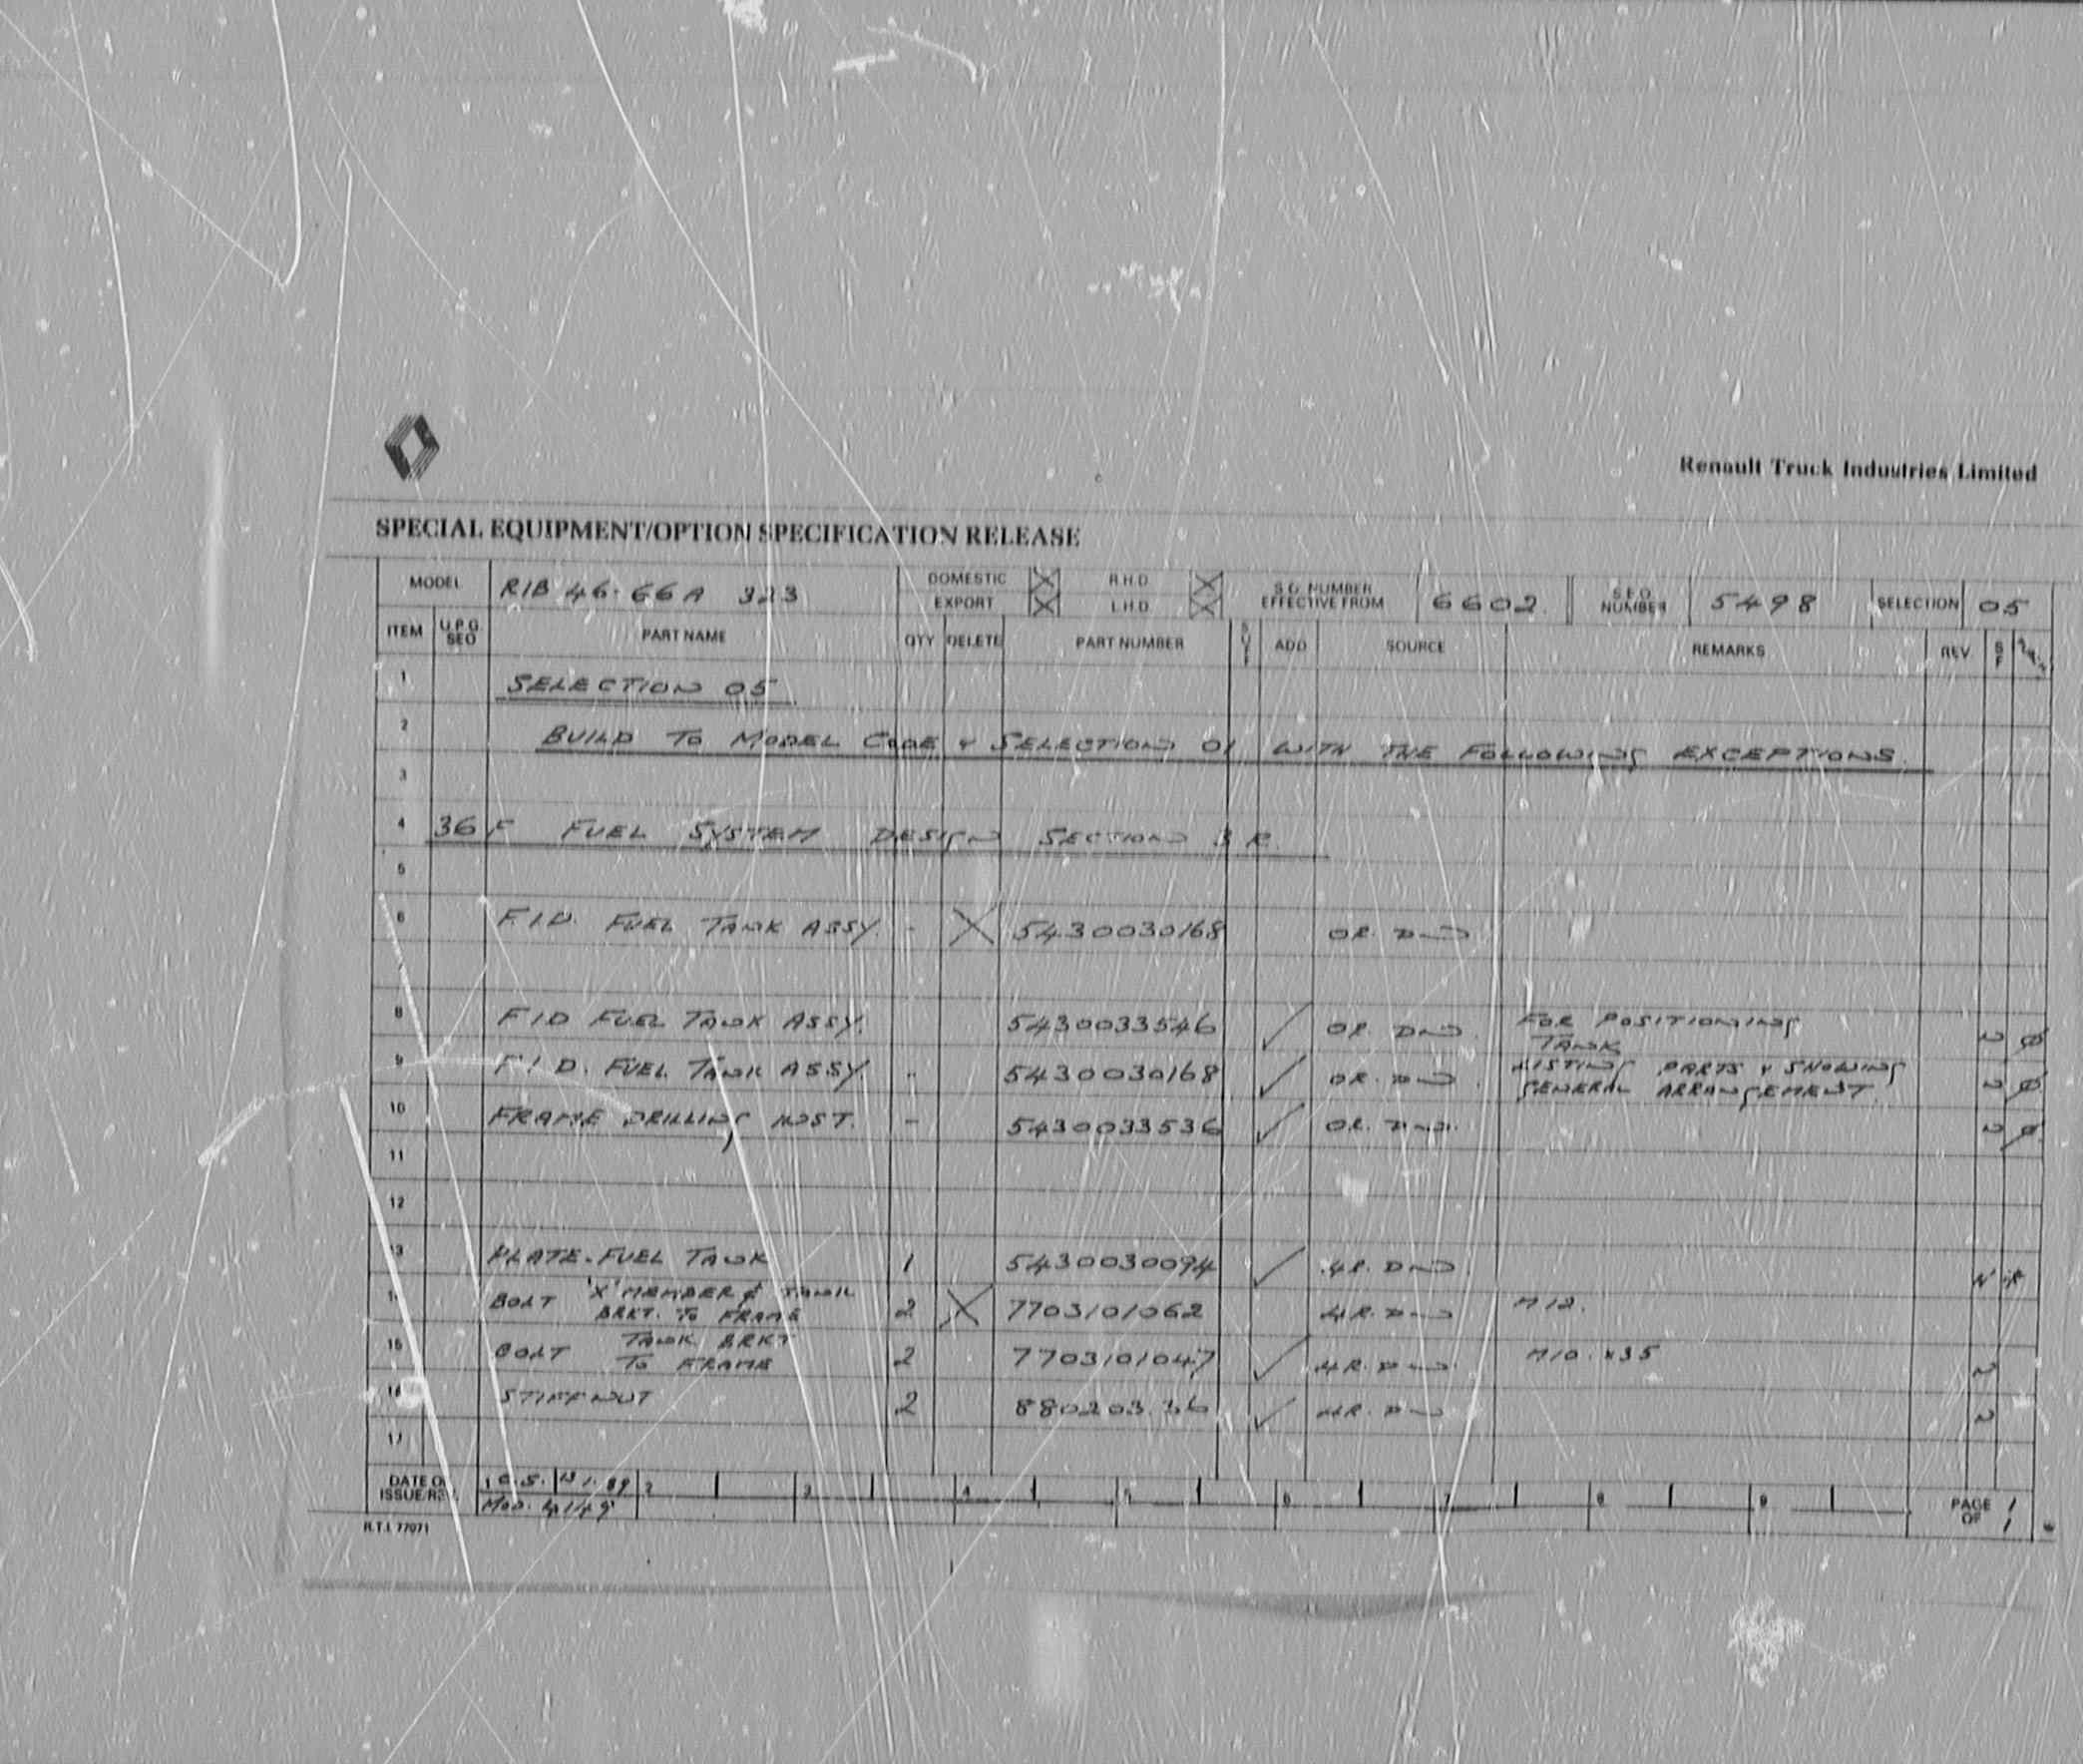 Renault Truck Industries Limited
SPECIAL EQUIPMENT/OPTION SPECIFICATION RELEASE
MODEL RIB 46.66A 323 DOMESTIC R.H.D S.O. NUMBER EFFECTIVE FROM 6602 S.E.O. NUMBER 5498 SELECTION 05
EXPORT L.H.D
ITEM U.P.G. SEO PART NAME QTY DELETE PART NUMBER ADD SOURCE REMARKS REV S F
1 SELECTION 05
2 BUILD TO MODEL CODE & SELECTION 01 WITH THE FOLLOWING EXCEPTIONS.
3
4 36 F FUEL SYSTEM DESIGN SECTION 3 R.
5
6 F.I.D. FUEL TANK ASSY - X 5430030168 OR. DND
7
8 F.I.D FUEL TANK ASSY. 5430033546 ✓ OR. DND. FOR POSITIONING TANK N Ø
9 F.I.D. FUEL TANK ASSY. - 5430030168 ✓ OR. DND. LISTING PARTS & SHOWING GENERAL ARRANGEMENT. N Ø
10 FRAME DRILLING INST. - 5430033536 ✓ OR. DND. N Ø
11
12
13 PLATE-FUEL TANK 1 5430030094 ✓ 4R. DND.
14 BOLT 'X' MEMBER & TANK BRKT. TO FRAME 2 X 7703101062 4R. DND M12.
15 BOLT TANK BRKT TO FRAME 2 7703101047 ✓ 4R. DND. M10. x35 N
16 STIFFNUT 2 880203.36 ✓ 4R. DND N
17
DATE OF ISSUE/REV. 1 2 3 4 5 6 7 8 9 PAGE 1 OF 1
R.T.I. 77071